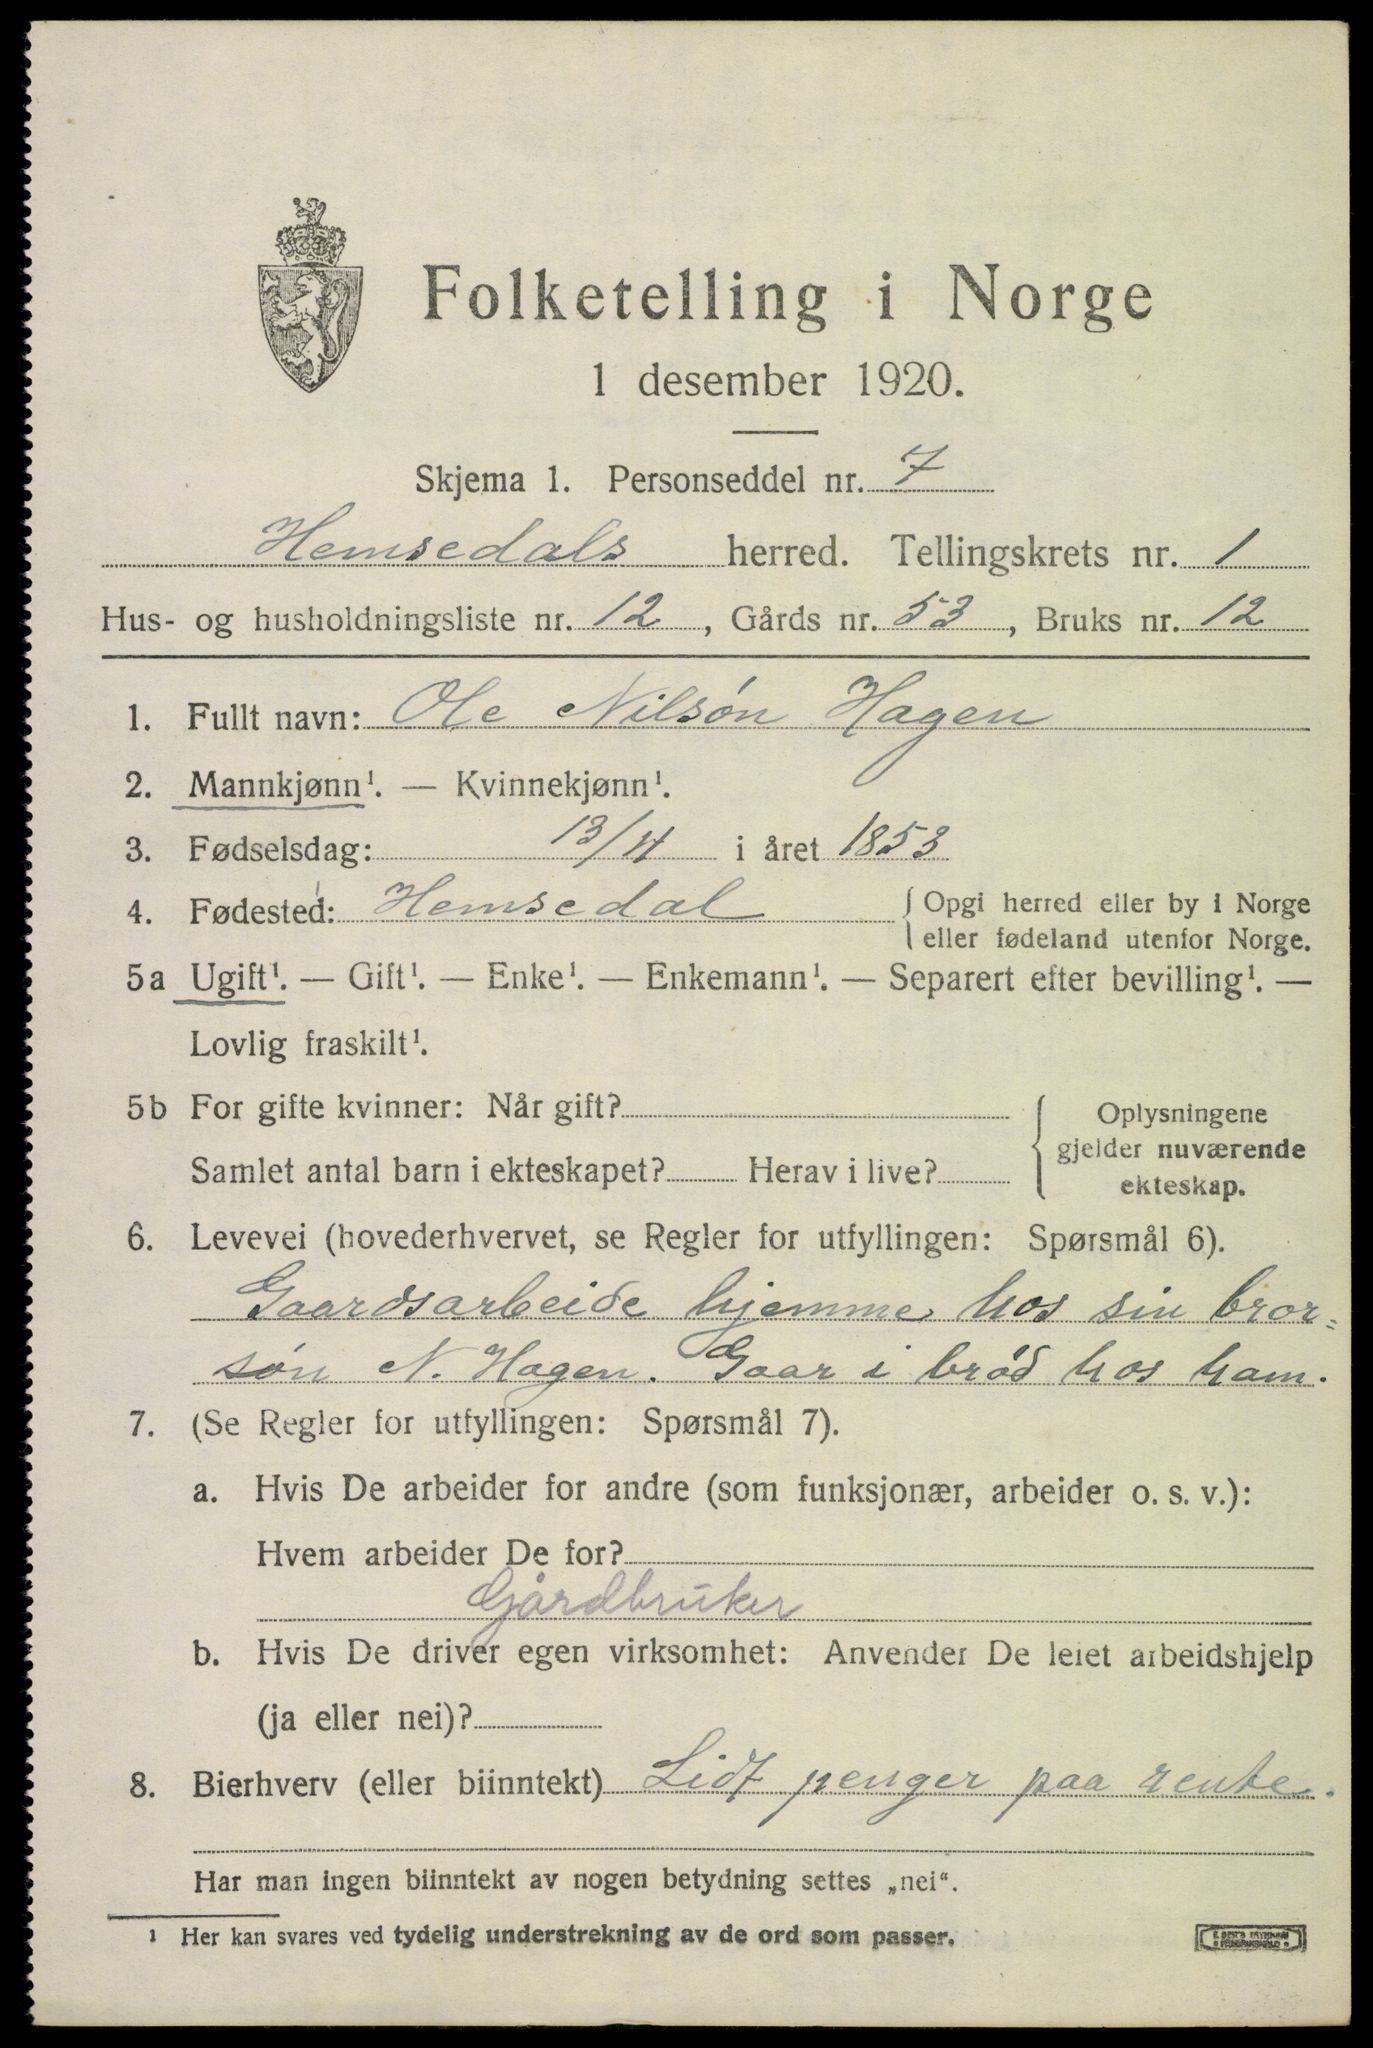 Folketelling i Norge
1 desember 1920.
Skjema 1. Personseddel nr. 7
Hemsedals herred. Tellingskrets nr. 1
Hus- og husholdningsliste nr. 12, Gårds nr. 53, Bruks nr. 12
1. Fullt navn: Ole Nilsøn Hagen
2. Mannkjønn¹. — Kvinnekjønn¹.
3. Fødselsdag: 13/4 i året 1853
4. Fødested: Hemsedal { Opgi herred eller by i Norge
eller fødeland utenfor Norge.
5a Ugift¹. — Gift¹. — Enke¹. — Enkemann¹. — Separert efter bevilling¹. —
Lovlig fraskilt¹.
5b For gifte kvinner: Når gift?
Samlet antal barn i ekteskapet? Herav i live?
{ Oplysningene
gjelder nuværende
ekteskap.
6. Levevei (hovederhvervet, se Regler for utfyllingen: Spørsmål 6).
Gaardsarbeide hjemme hos sin bror=
søn N. Hagen. Gaar i brød hos ham.
7. (Se Regler for utfyllingen: Spørsmål 7).
a. Hvis De arbeider for andre (som funksjonær, arbeider o. s. v.):
Hvem arbeider De for?
Gårdbruker
b. Hvis De driver egen virksomhet: Anvender De leiet arbeidshjelp
(ja eller nei)?
8. Bierhverv (eller biinntekt) Lidt penger paa rente.
Har man ingen biinntekt av nogen betydning settes „nei“.
¹ Her kan svares ved tydelig understrekning av de ord som passer.